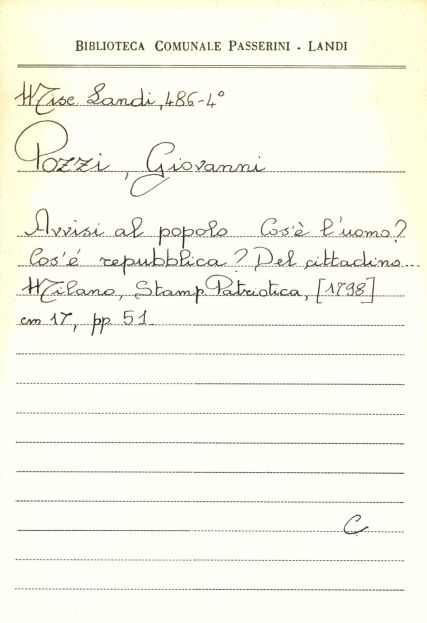 BIBLIOTECA COMUNALE PASSERINI - LANDI
Misc Landi, 486-4°
Pozzi, Giovanni
Avvisi al popolo Cos'è l'uomo?
Cos'é repubblica? Del cittadino...
Milano, Stamp. Patriotica, [1798]
cm 17, pp 51
C